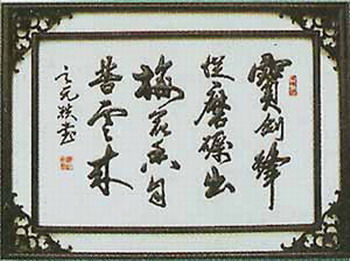 寶劍鋒
從磨礪出
梅花香自
苦寒來